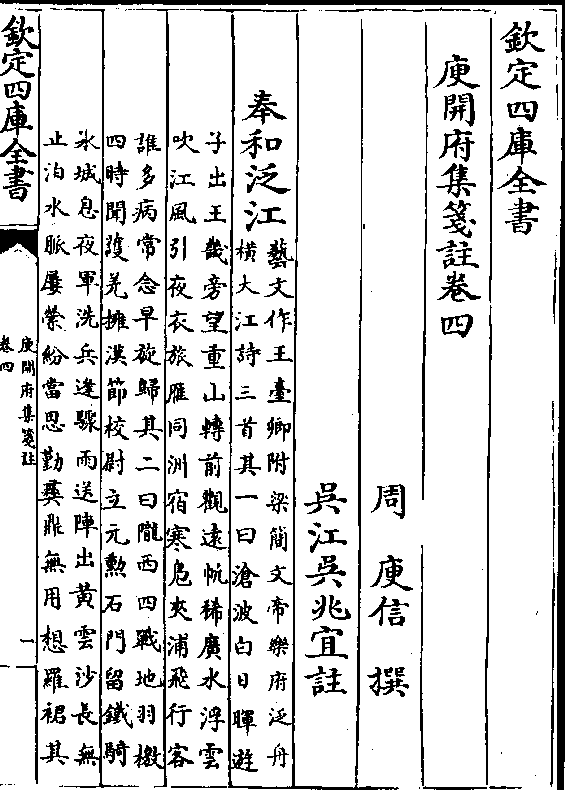 欽定四庫全書
庾開府集箋註卷四
周 庾信 撰
吳江吳兆宜註
奉和泛江
藝文作王臺卿附梁簡文帝樂府泛舟
橫大江詩三首其一曰滄波白日暉遊
子出王畿旁望重山轉前觀遠帆稀廣水浮雲
吹江風引夜衣旅雁同洲宿寒鳬夾浦飛行客
誰多病常念早旋歸其二曰隴西四戰地羽檄
四時聞護羌擁漢節校尉立元勲石門留鐵騎
氷城息夜軍洗兵逢驟雨送陣出黃雲沙長無
止泊水脈屢縈紛當思勤彞鼎無用想羅裙其
欽定四庫全書
庾開府集箋註
卷四
一